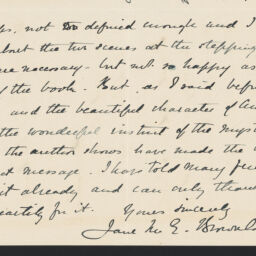 not so defined enough and I
the two scenes at the stepping
necessary - but not so happy as
of the book. But, as I said befo
and the beautiful character of An
the wonderful instinct of the mys
the author shows have made the
message. I have told many frie
it already and can only than
heartily for it. Yours sincerely
Jane M. E. Brown